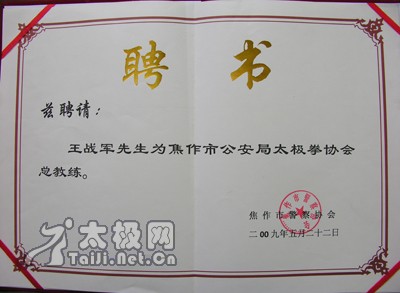 聘书
兹聘请：
王战军先生为焦作市公安局太极拳协会
总教练。
焦作市警察协会
二00九年五月二十二日
太极网
Taiji.net.cn